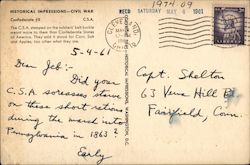 1974 09
HISTORICAL IMPRESSIONS—CIVIL WAR
RECD SATURDAY MAY 1961
Confederate
C.S.A.
The C.S.A. stamped on the soldiers' belt buckle
meant more to them than Confederate States
of America. They said it stood for Corn, Salt
and Apples, too often what they ate.
CLEVELAND
OHIO
5-4-61
Dear Jeb:-
Did your
C.S.A. soreasses starve
on these short rations
during the march into
Pennsylvania in 1863?
Early
Capt. Shelton
63 Vena Hill
Fairfield, Conn.